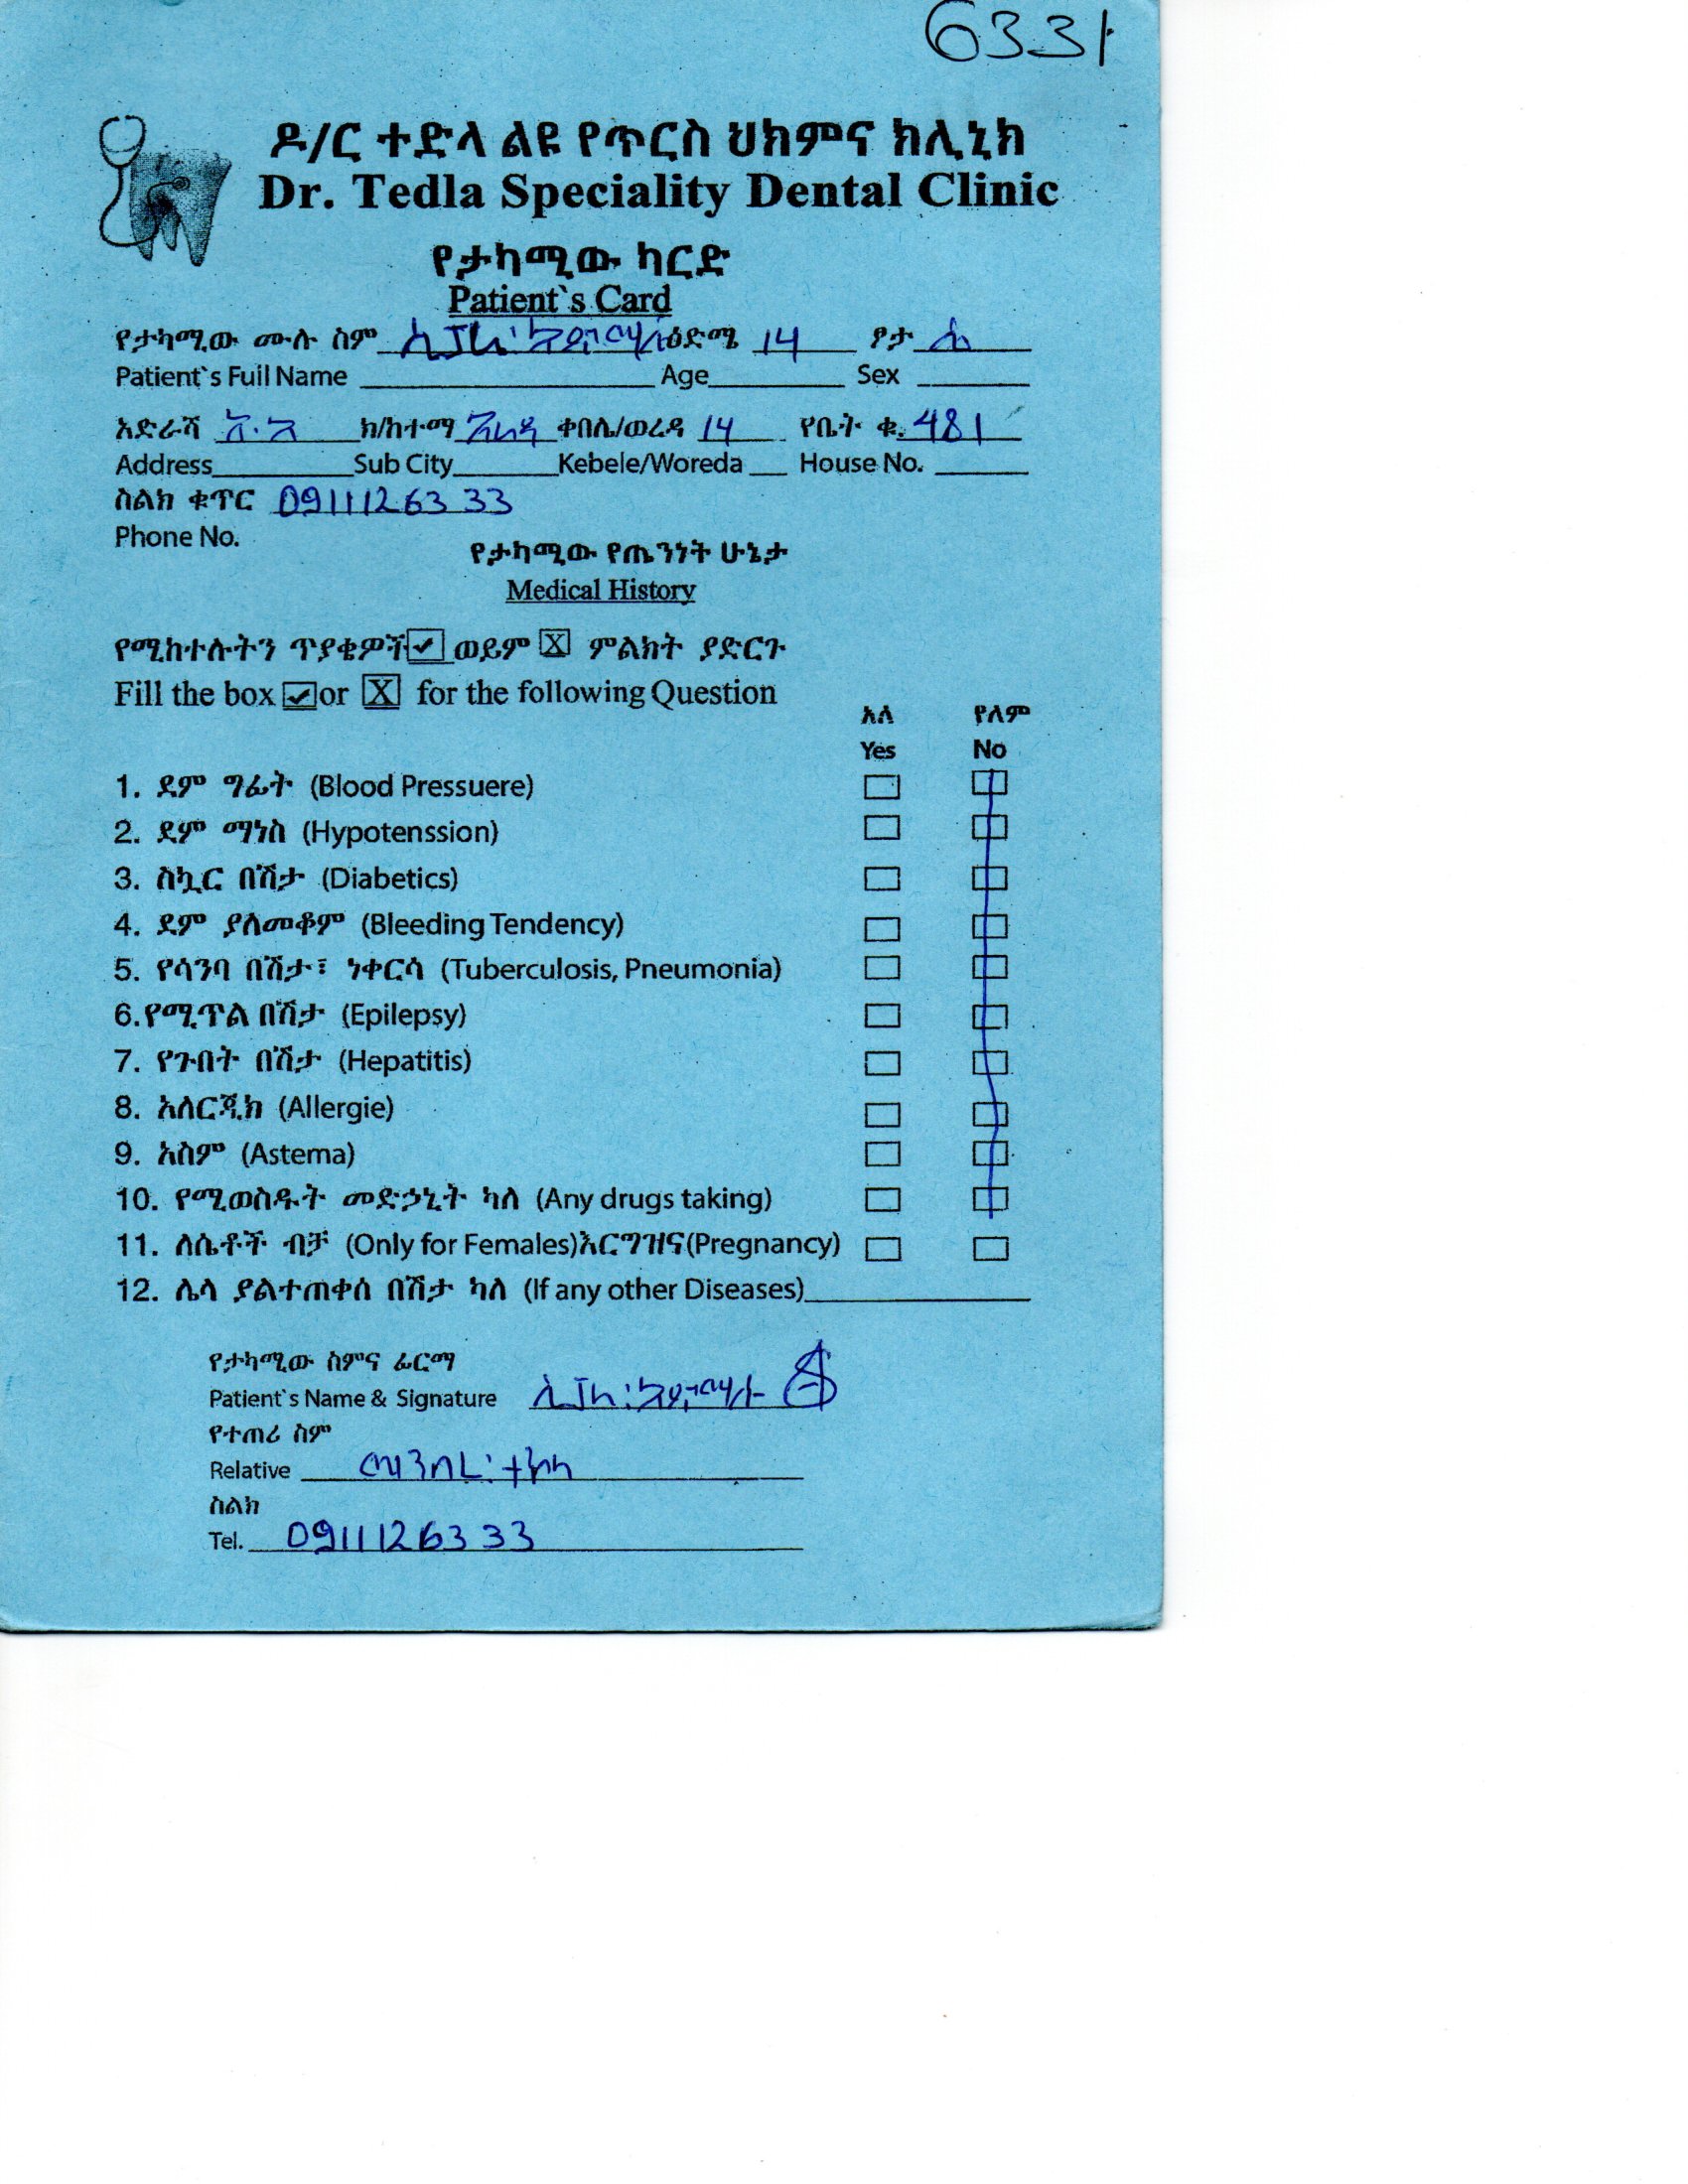 6331
ዶ/ር ተድላ ልዩ የጥርስ ህክምና ክሊኒክ
Dr. Tedla Speciality Dental Clinic
የታካሚው ካርድ
Patient`s Card
የታካሚው ሙሉ ስም ዕድሜ 14 ፆታ ሴ
Patient`s Full Name Age Sex
አድራሻ አ.አ ክ/ከተማ ቀበሌ/ወረዳ 14 የቤት ቁ. 481
Address Sub City Kebele/Woreda House No.
ስልክ ቁጥር 0911126333
Phone No.
የታካሚው የጤንነት ሁኔታ
Medical History
የሚከተሉትን ጥያቄዎች ✓ ወይም X ምልክት ያድርጉ
Fill the box ✓ or X for the following Question
አለ የለም
Yes No
1. ደም ግፊት (Blood Pressuere)
2. ደም ማነስ (Hypotenssion)
3. ስኳር በሽታ (Diabetics)
4. ደም ያለመቆም (Bleeding Tendency)
5. የሳንባ በሽታ፣ ነቀርሳ (Tuberculosis, Pneumonia)
6.የሚጥል በሽታ (Epilepsy)
7. የጉበት በሽታ (Hepatitis)
8. አለርጂክ (Allergie)
9. አስም (Astema)
10. የሚወስዱት መድኃኒት ካለ (Any drugs taking)
11. ለሴቶች ብቻ (Only for Females)እርግዝና(Pregnancy)
12. ሌላ ያልተጠቀሰ በሽታ ካለ (If any other Diseases)
የታካሚው ስምና ፊርማ
Patient`s Name & Signature
የተጠሪ ስም
Relative
ስልክ
Tel. 0911126333